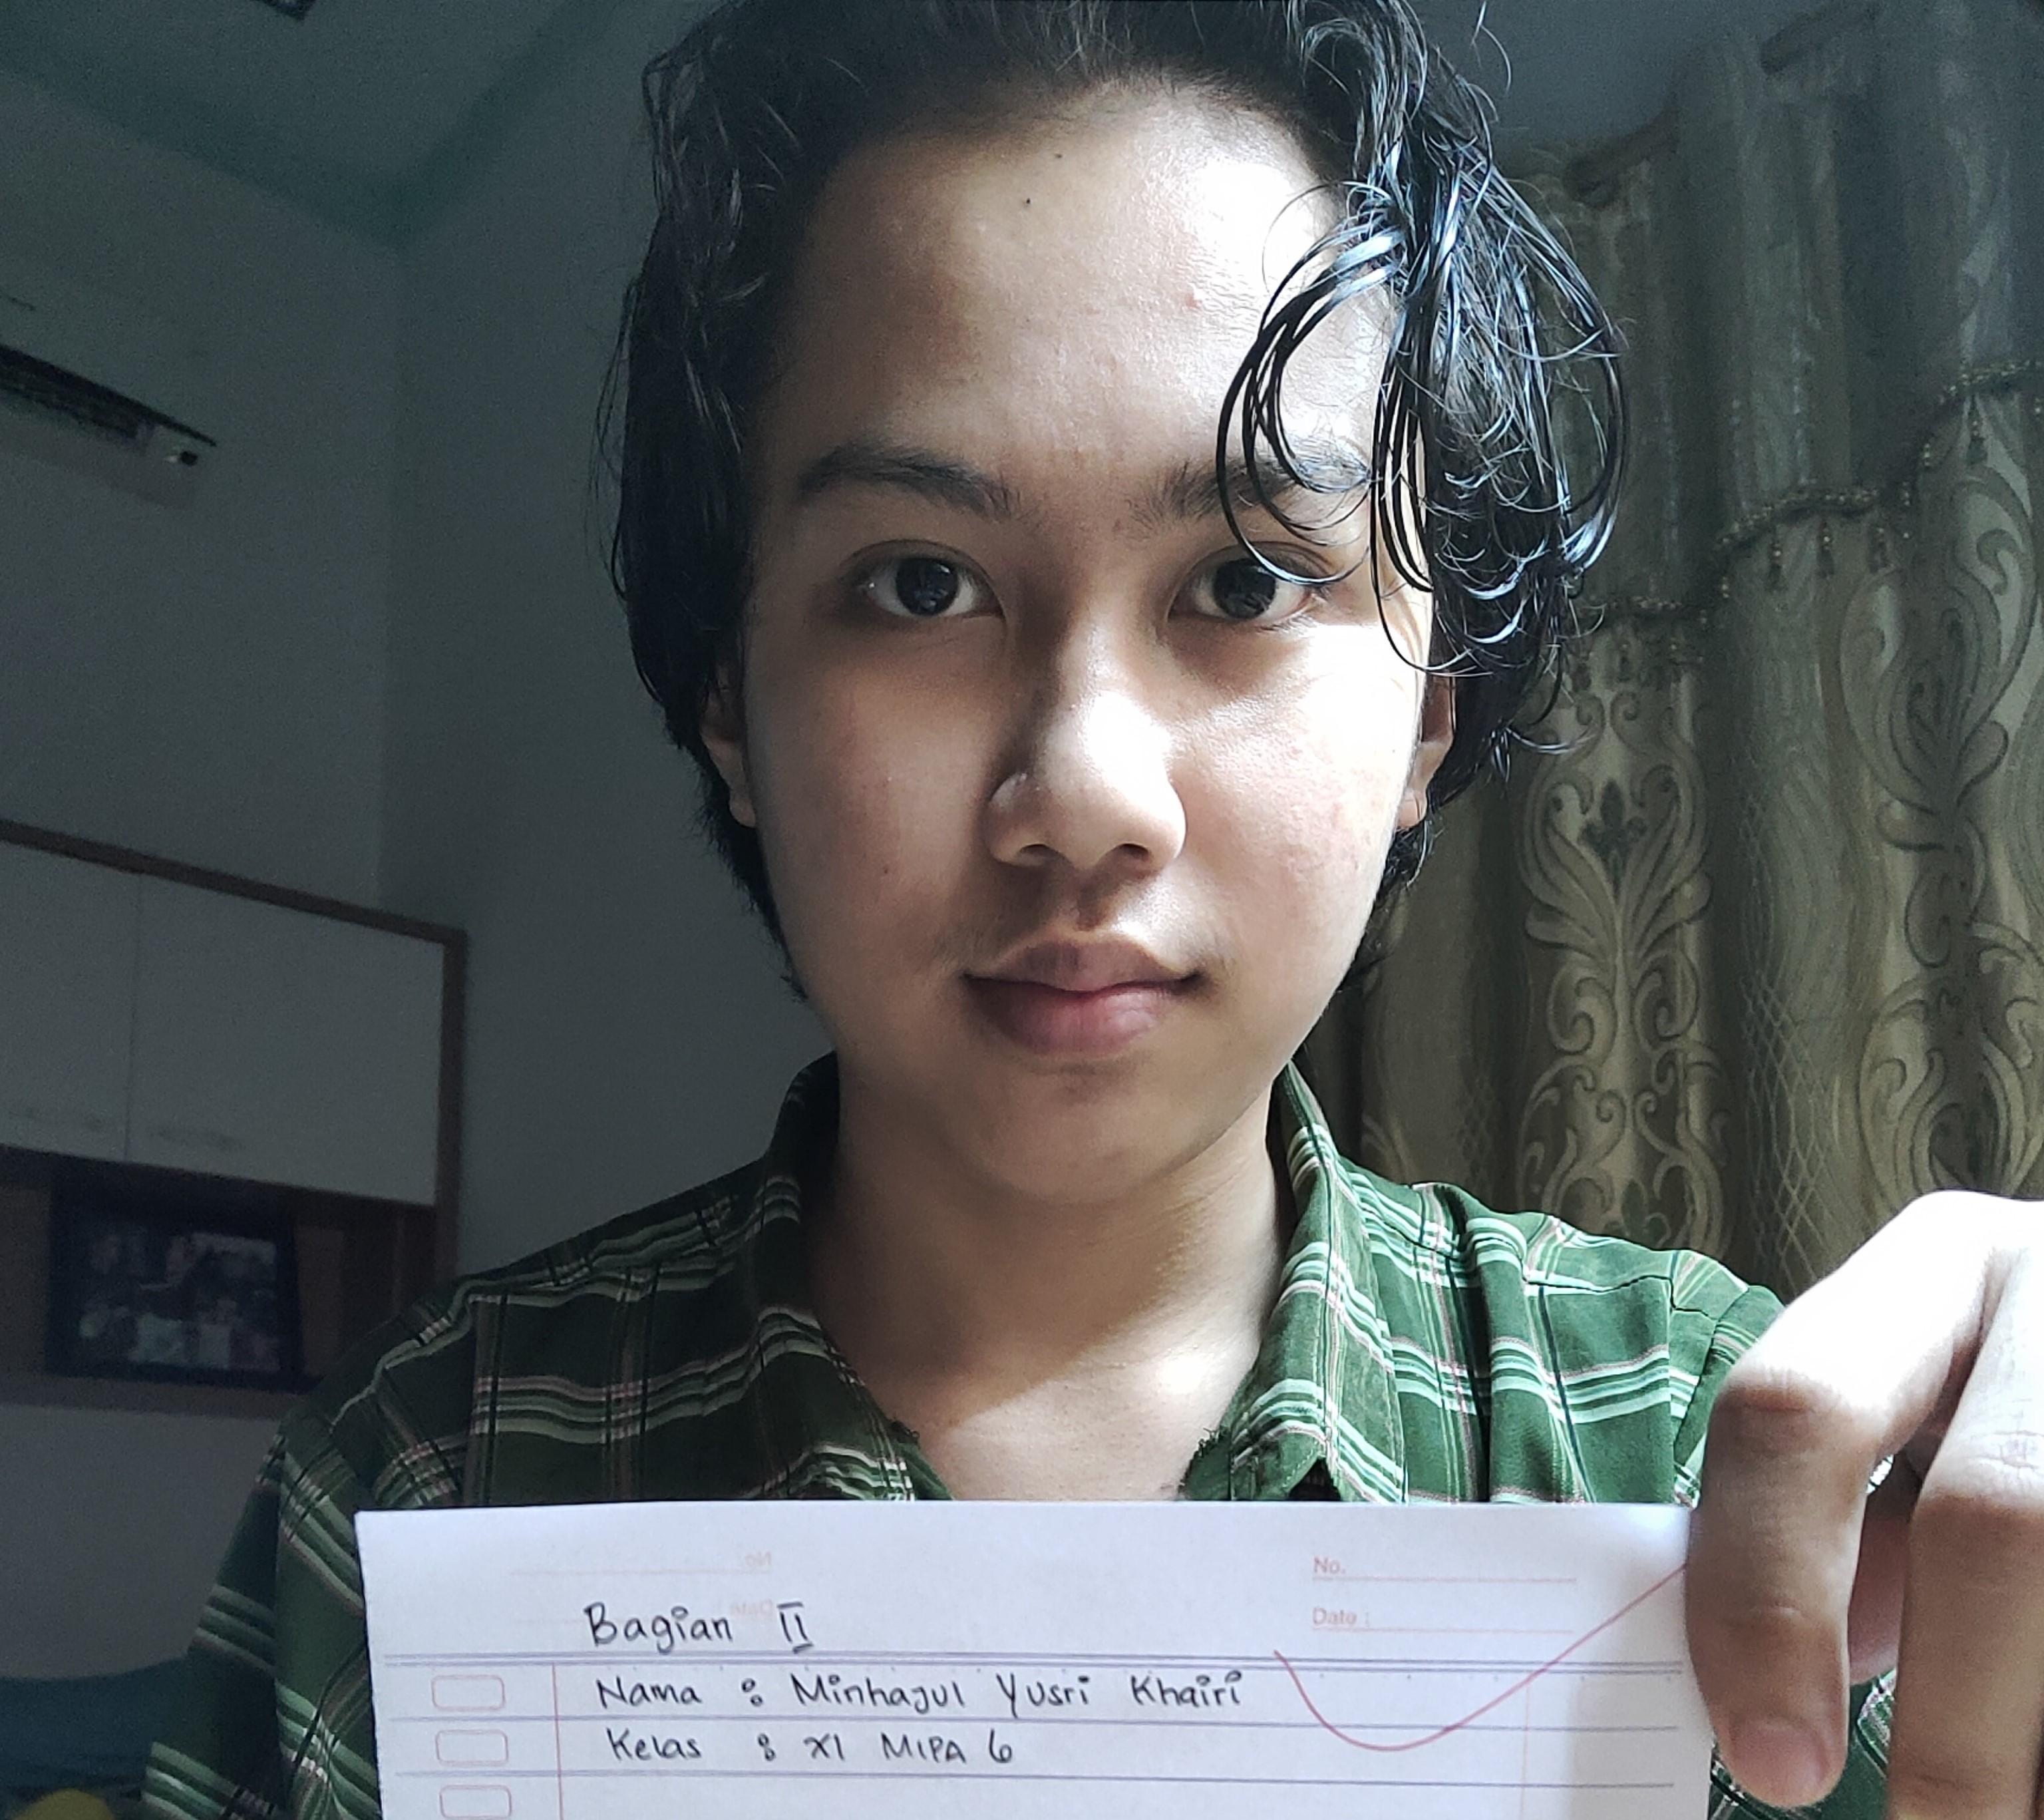 No.
Date :
Bagian II
Nama : Minhajul Yusri Khairi
Kelas : XI MIPA 6